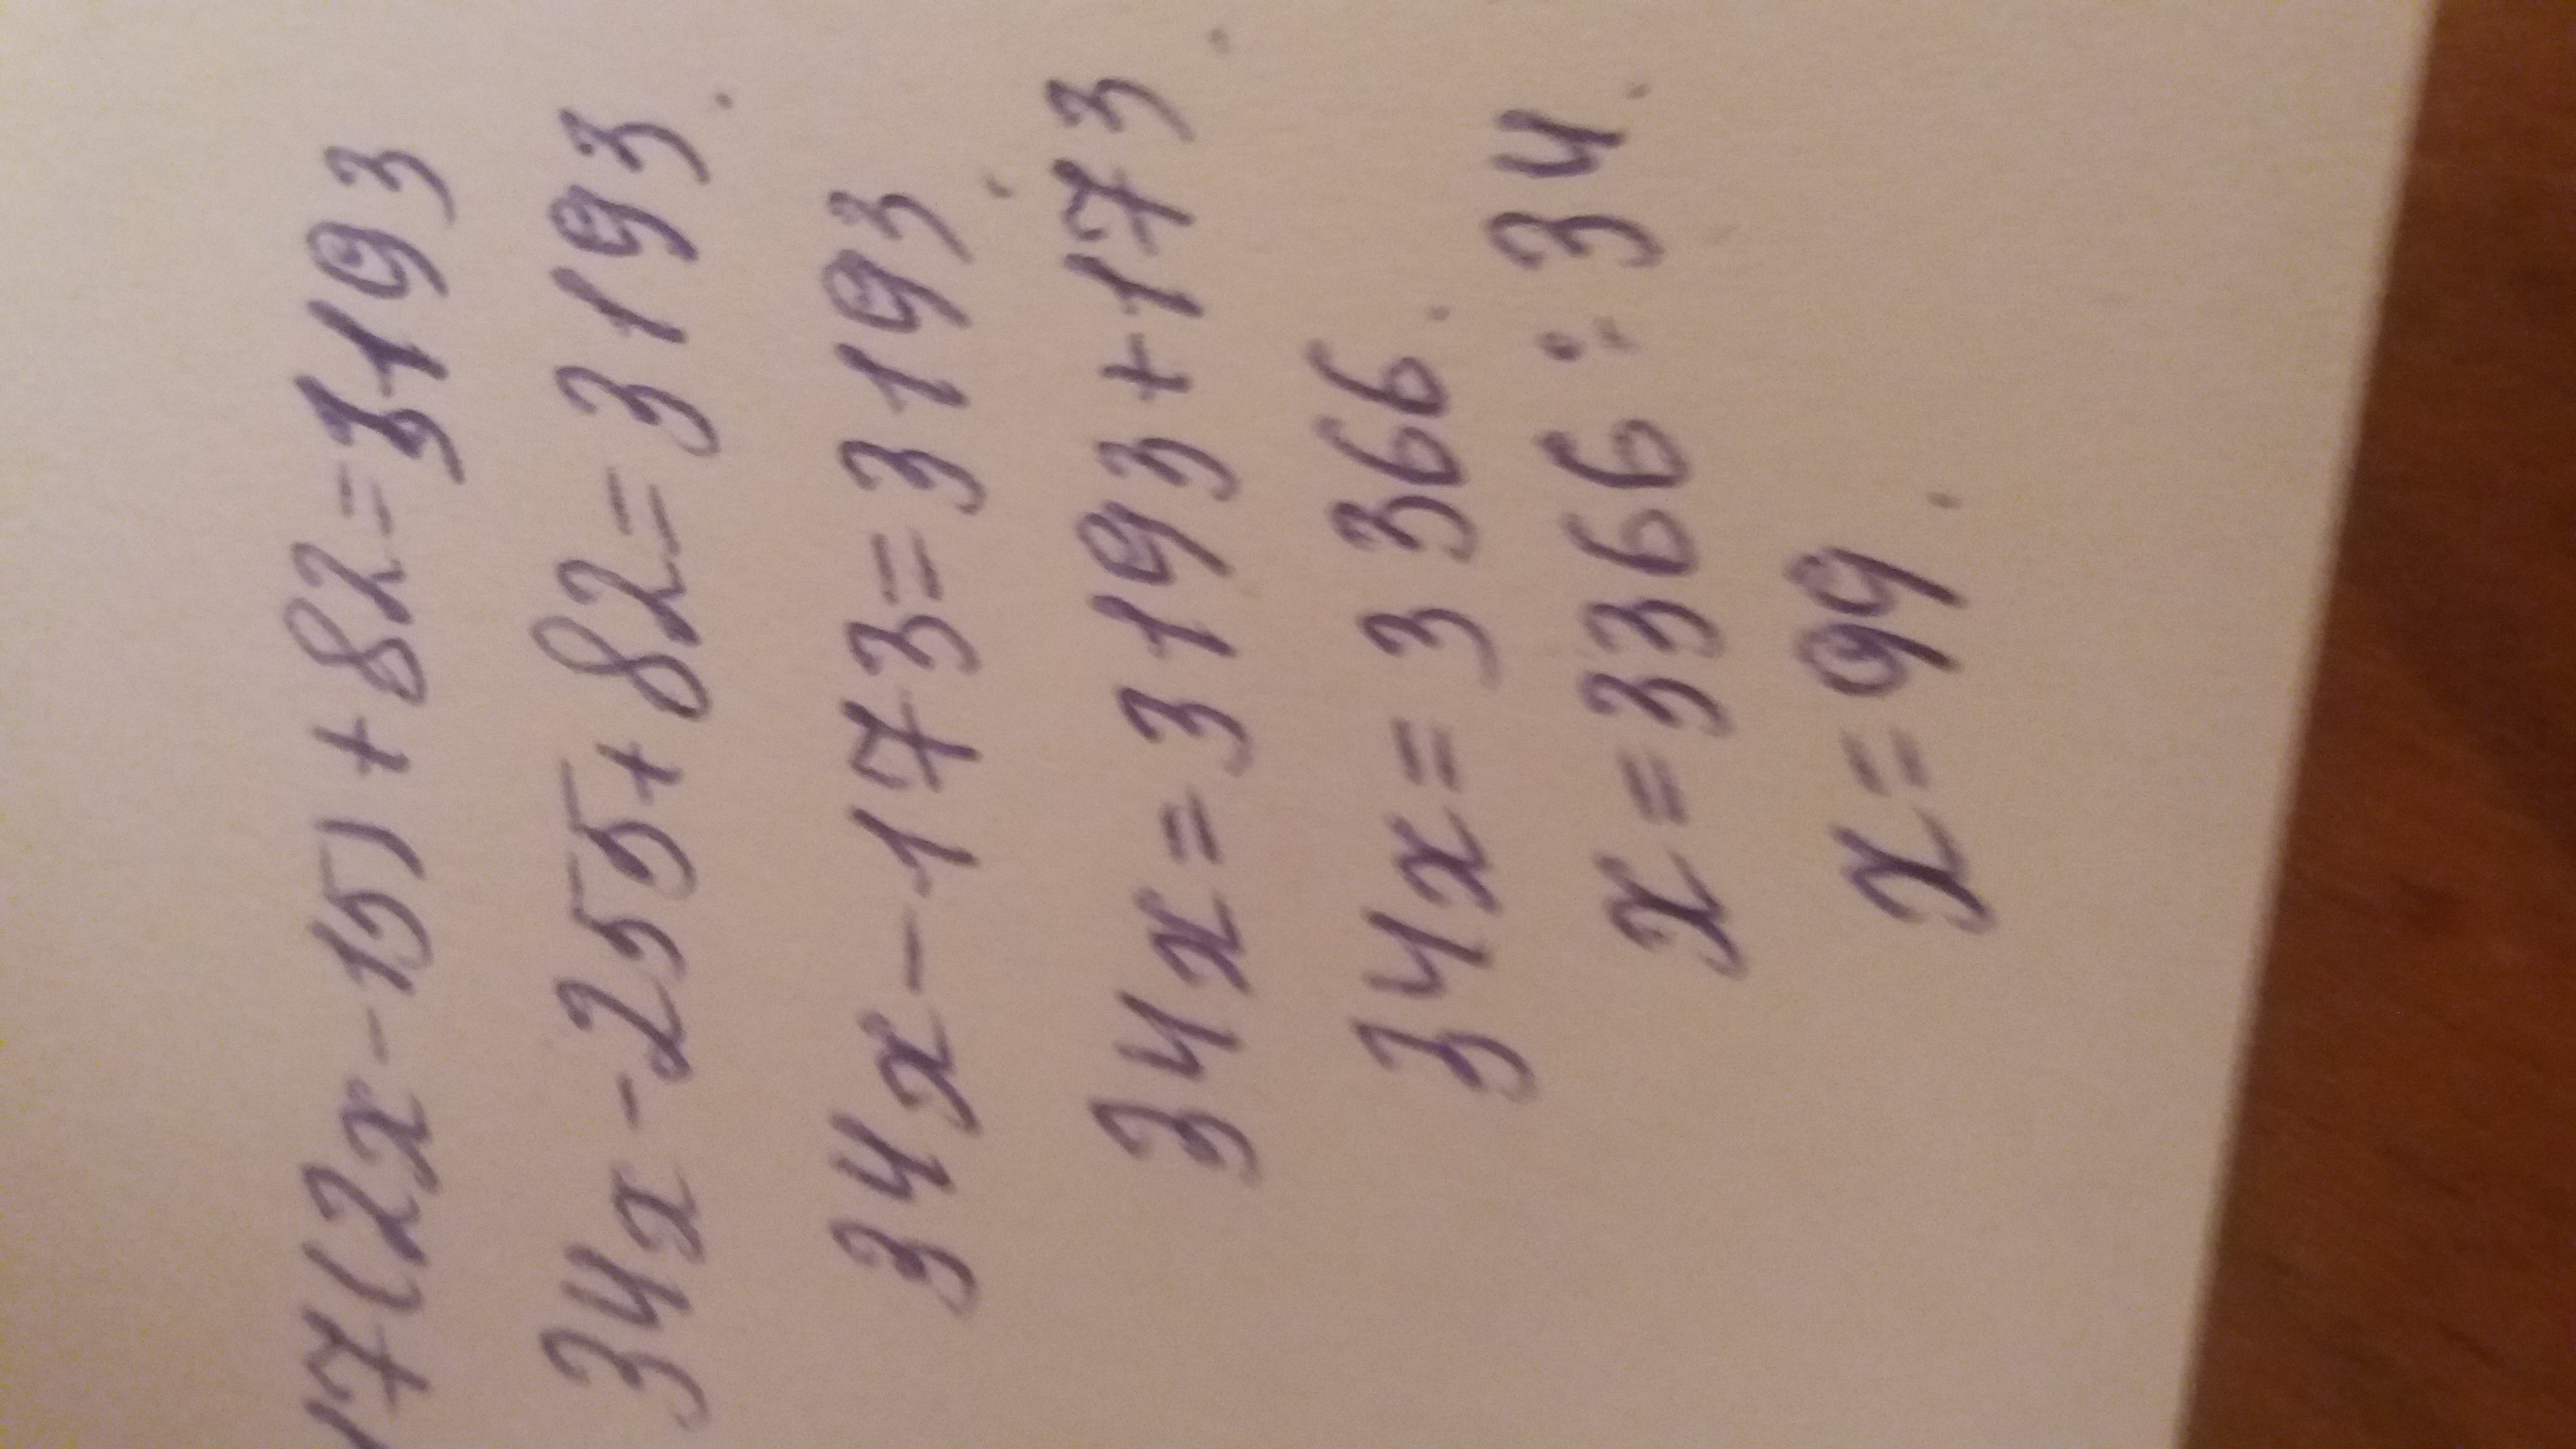 17(2x-15)+82=3193
34x-255+82=3193.
34x-173=3193.
34x=3193+173.
34x=3366.
x=3366:34.
x=99.